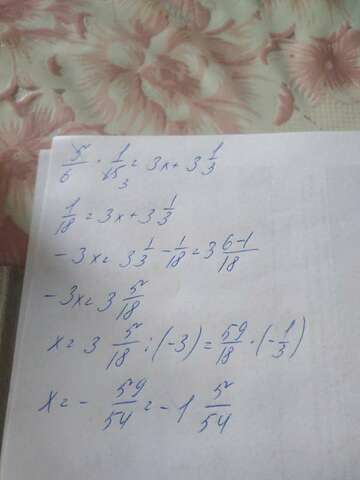 5/6 · 1/15 3 = 3x + 3 1/3
1/18 = 3x + 3 1/3
-3x = 3 1/3 - 1/18 = 3 6-1/18
-3x = 3 5/18
x = 3 5/18 : (-3) = 59/18 · (-1/3)
x = - 59/54 = -1 5/54